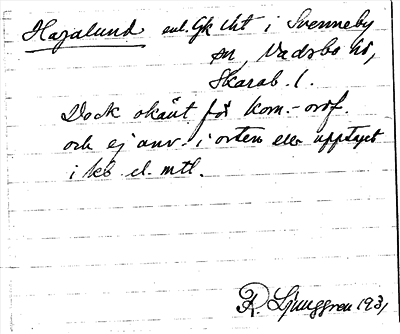 Hajalund enl. Gk lht i Svenneby
sn, Vadsbo hd,
Skarab. l.
Dock okänt för kom.-ordf.
och ej anv. i orten eller upptaget
i kb el. mtl.
R. Ljunggren 1931